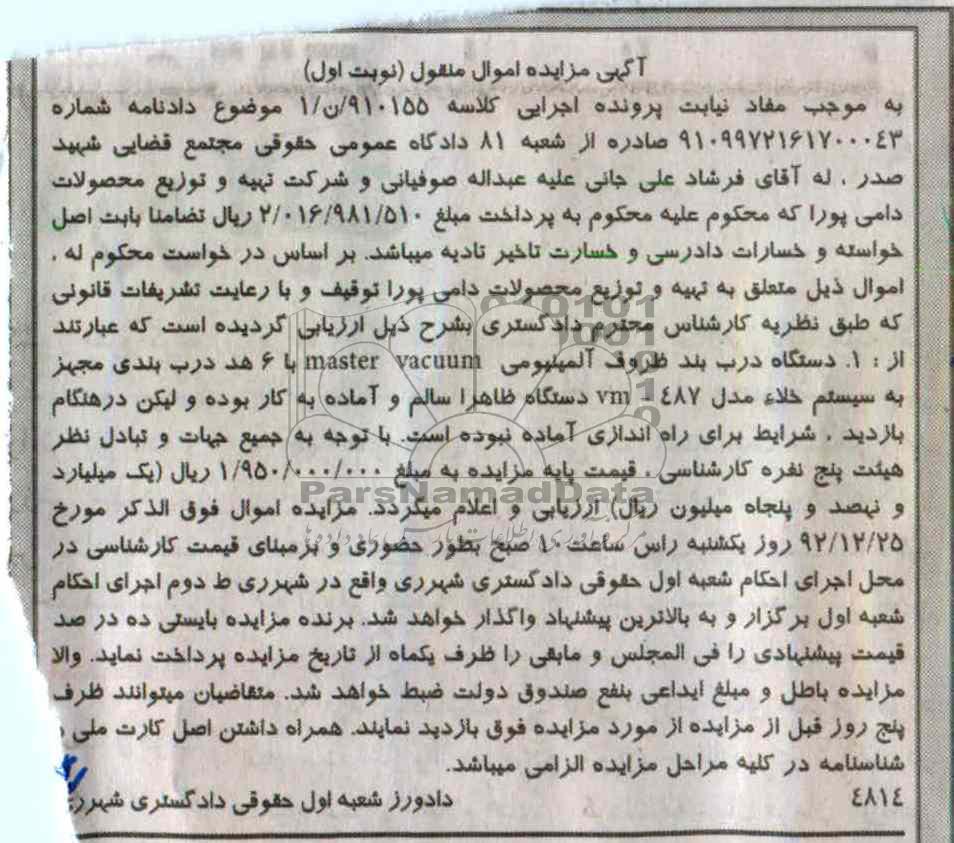 آگهی مزایده اموال منقول (نوبت اول)
به موجب مفاد نیابت پرونده اجرایی کلاسه ۹۱۰۱۵۵/ن/۱ موضوع دادنامه شماره
۹۱۰۹۹۷۲۱۶۱۷۰۰۰۴۳ صادره از شعبه ۸۱ دادگاه عمومی حقوقی مجتمع قضایی شهید
صدر ، له آقای فرشاد علی جانی علیه عبداله صوفیانی و شرکت تهیه و توزیع محصولات
دامی پورا که محکوم علیه محکوم به پرداخت مبلغ ۲/۰۱۶/۹۸۱/۵۱۰ ریال تضامنا بابت اصل
خواسته و خسارات دادرسی و خسارت تاخیر تادیه میباشد. بر اساس در خواست محکوم له ،
اموال ذیل متعلق به تهیه و توزیع محصولات دامی پورا توقیف و با رعایت تشریفات قانونی
که طبق نظریه کارشناس محترم دادگستری بشرح ذیل ارزیابی گردیده است که عبارتند
از : ۱. دستگاه درب بند ظروف آلمینیومی master vacuum با ۶ هد درب بندی مجهز
به سیستم خلاء مدل vm - ٤٨٧ دستگاه ظاهرا سالم و آماده به کار بوده و لیکن درهنگام
بازدید ، شرایط برای راه اندازی آماده نبوده است. با توجه به جمیع جهات و تبادل نظر
هیئت پنج نفره کارشناسی ، قیمت پایه مزایده به مبلغ ۱/۹۵۰/۰۰۰/۰۰۰ ریال (یک میلیارد
و نهصد و پنجاه میلیون ریال) ارزیابی و اعلام میگردد. مزایده اموال فوق الذکر مورخ
۹۲/۱۲/۲۵ روز یکشنبه راس ساعت ۱۰ صبح بطور حضوری و برمبنای قیمت کارشناسی در
محل اجرای احکام شعبه اول حقوقی دادگستری شهرری واقع در شهرری ط دوم اجرای احکام
شعبه اول برگزار و به بالاترین پیشنهاد واگذار خواهد شد. برنده مزایده بایستی ده در صد
قیمت پیشنهادی را فی المجلس و مابقی را ظرف یکماه از تاریخ مزایده پرداخت نماید. والا
مزایده باطل و مبلغ ایداعی بنفع صندوق دولت ضبط خواهد شد. متقاضیان میتوانند ظرف
پنج روز قبل از مزایده از مورد مزایده فوق بازدید نمایند. همراه داشتن اصل کارت ملی و
شناسنامه در کلیه مراحل مزایده الزامی میباشد.
٤٨١٤ دادورز شعبه اول حقوقی دادگستری شهرری
ParsNamadData